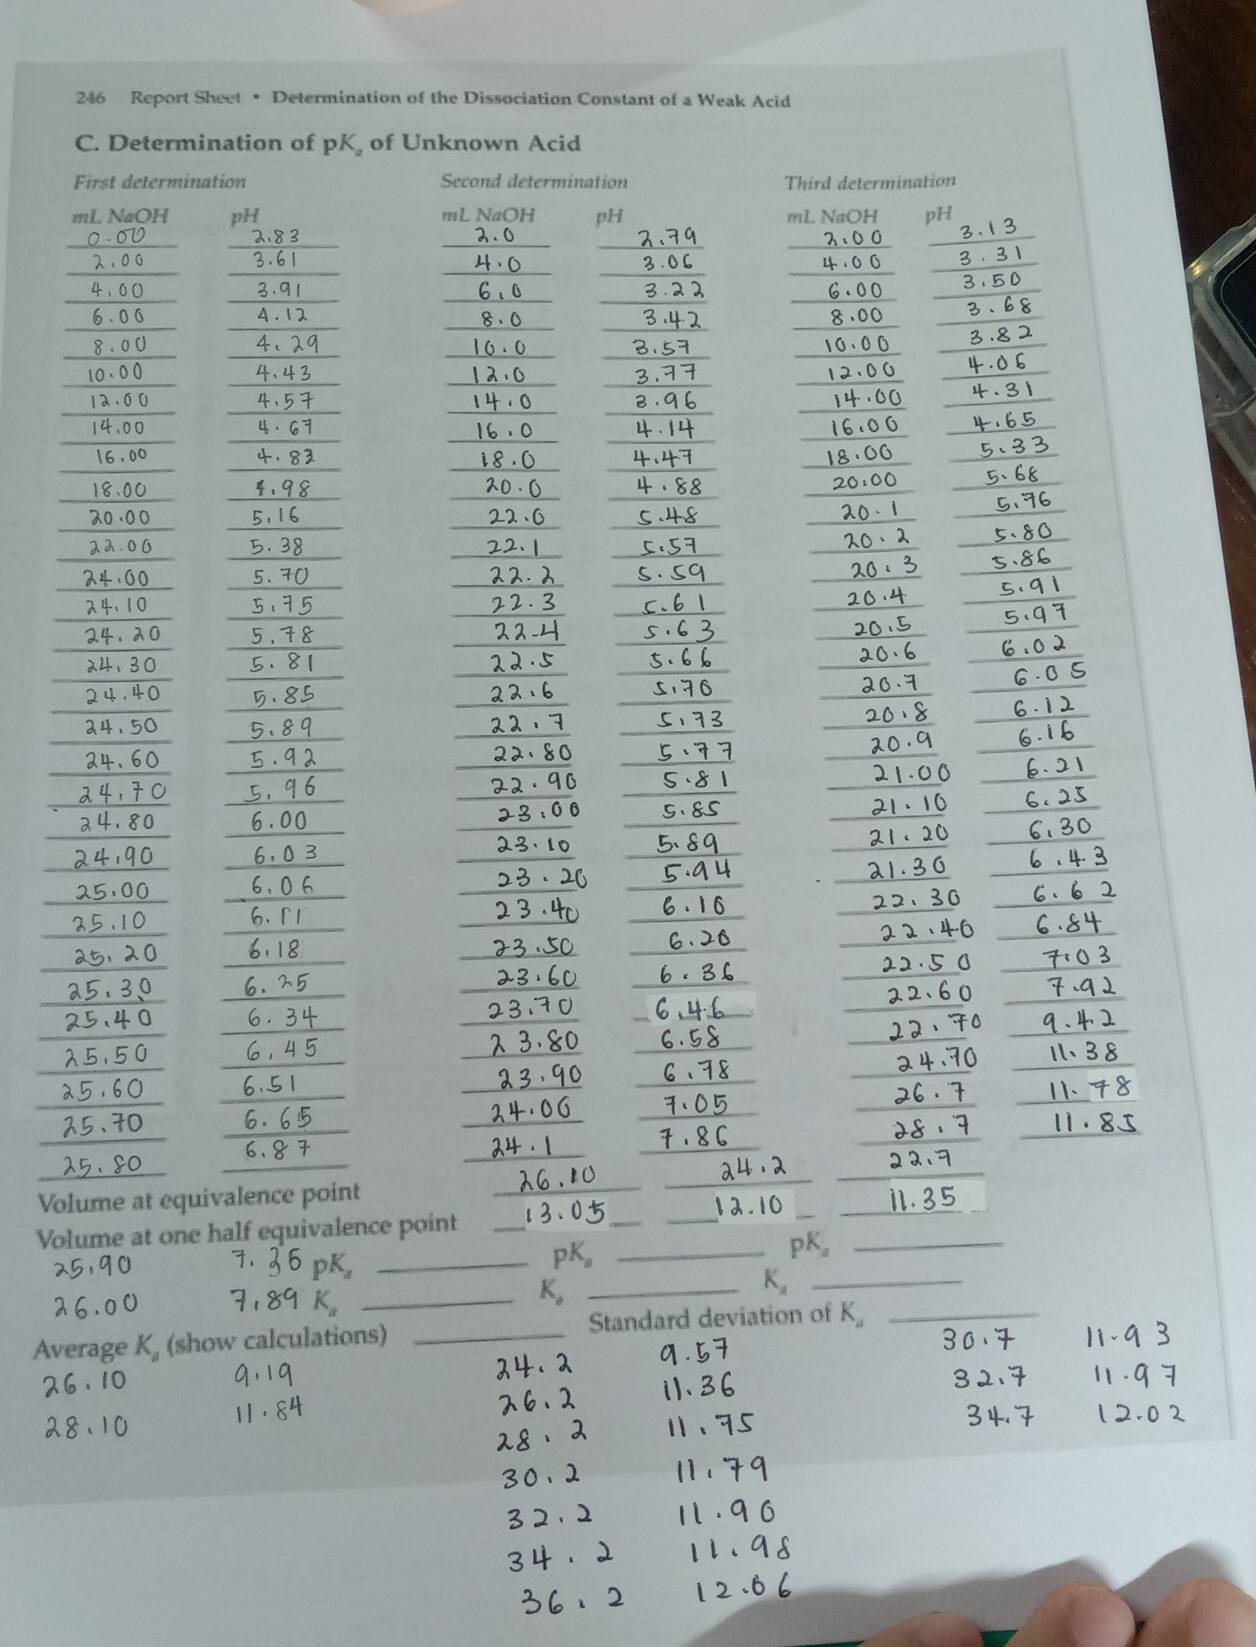 246 Report Sheet • Determination of the Dissociation Constant of a Weak Acid
C. Determination of pKa of Unknown Acid
First determination Second determination Third determination
mL NaOH pH mL NaOH pH mL NaOH pH
0.00 2.83 2.0 2.79 2.00 3.13
2.00 3.61 4.0 3.06 4.00 3.31
4.00 3.91 6.0 3.22 6.00 3.50
6.00 4.12 8.0 3.42 8.00 3.68
8.00 4.29 10.0 3.57 10.00 3.82
10.00 4.43 12.0 3.77 12.00 4.06
12.00 4.57 14.0 3.96 14.00 4.31
14.00 4.67 16.0 4.14 16.00 4.65
16.00 4.82 18.0 4.47 18.00 5.33
18.00 4.98 20.0 4.88 20.00 5.68
20.00 5.16 22.0 5.48 20.1 5.76
22.00 5.38 22.1 5.57 20.2 5.80
24.00 5.70 22.2 5.59 20.3 5.86
24.10 5.75 22.3 5.61 20.4 5.91
24.20 5.78 22.4 5.63 20.5 5.97
24.30 5.81 22.5 5.66 20.6 6.02
24.40 5.85 22.6 5.70 20.7 6.05
24.50 5.89 22.7 5.73 20.8 6.12
24.60 5.92 22.80 5.77 20.9 6.16
24.70 5.96 22.90 5.81 21.00 6.21
24.80 6.00 23.00 5.85 21.10 6.25
24.90 6.03 23.10 5.89 21.20 6.30
25.00 6.06 23.20 5.94 21.30 6.43
25.10 6.11 23.40 6.10 22.30 6.62
25.20 6.18 23.50 6.20 22.40 6.84
25.30 6.25 23.60 6.36 22.50 7.03
25.40 6.34 23.70 6.46 22.60 7.92
25.50 6.45 23.80 6.58 22.70 9.42
25.60 6.51 23.90 6.78 24.70 11.38
25.70 6.65 24.00 7.05 26.7 11.78
25.80 6.87 24.1 7.86 28.7 11.85
Volume at equivalence point 26.10 24.2 22.7
Volume at one half equivalence point 13.05 12.10 11.35
25.90 7.36 pKa pKa pKa
26.00 7.89 Ka Ka Ka
Average Ka (show calculations) Standard deviation of Ka
26.10 9.19 24.2 9.57 30.7 11.93
28.10 11.84 26.2 11.36 32.7 11.97
28.2 11.75 34.7 12.02
30.2 11.79
32.2 11.90
34.2 11.98
36.2 12.06